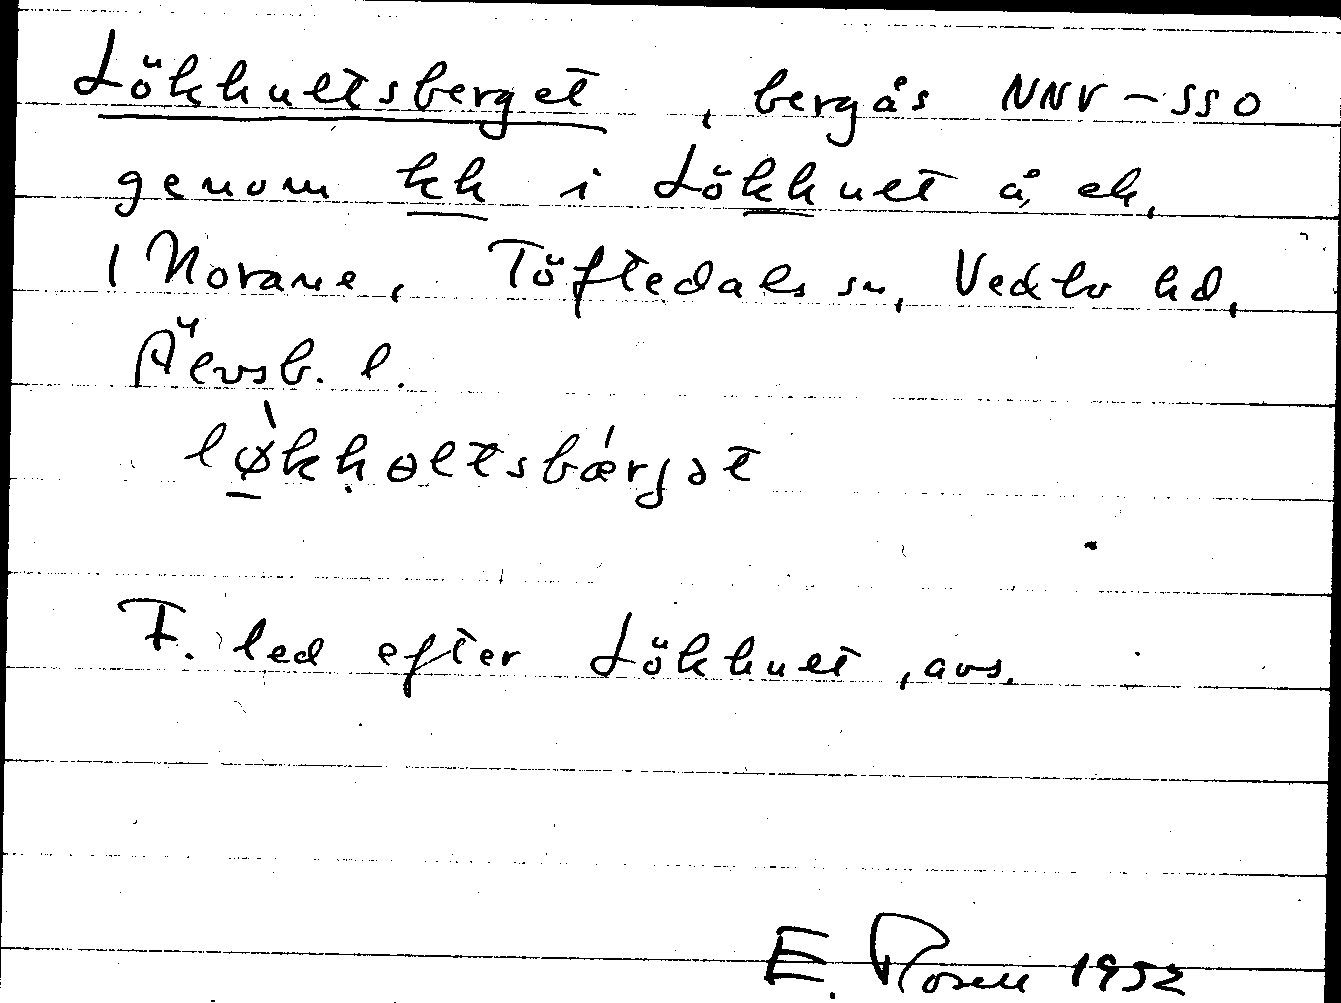 Lökhultsberget, bergås NNV–SSO
genom kh i Lökhult å, ek.
1 Norane, Töftedals sn, Vedbo hd,
Älvsb. l.
lø̀kḥoltsbǽrjət
F. led efter Lökhult, avs.
E. Rosell 1952